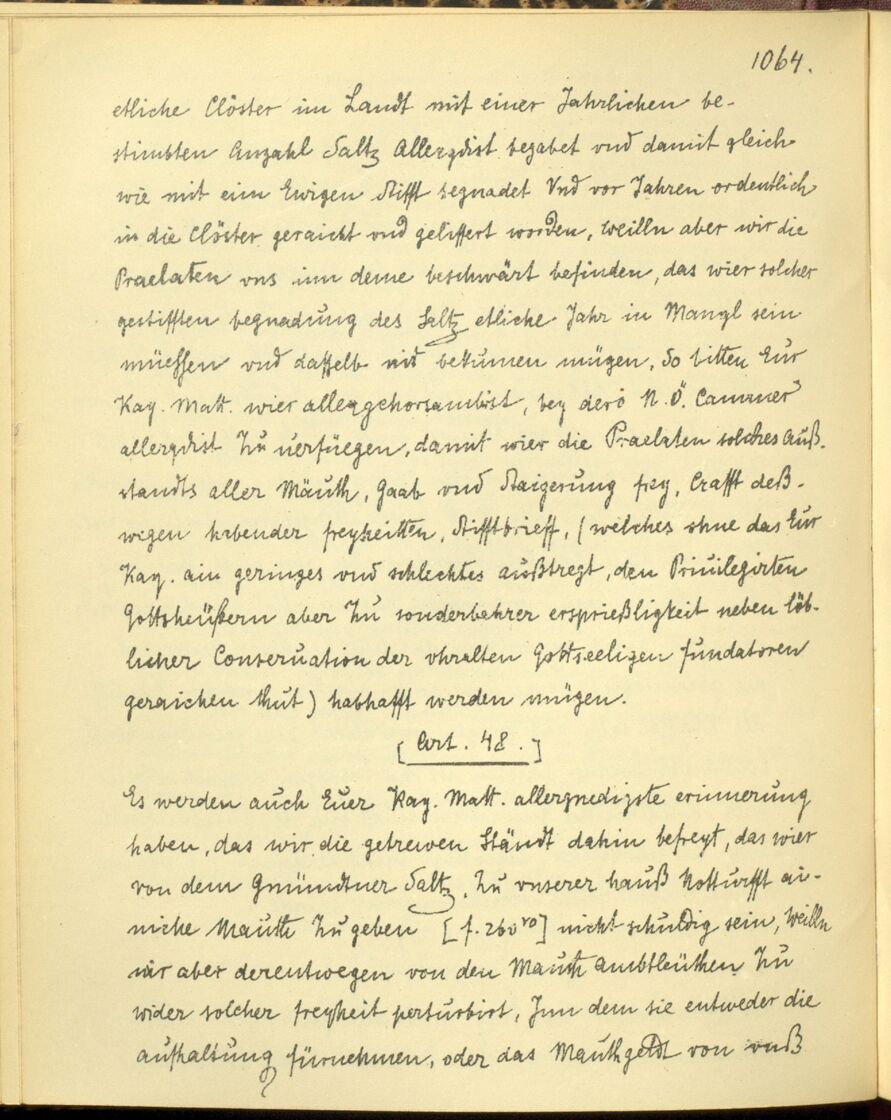 1064.
etliche Clöster im Landt mit einer Jahrlichen be-
stimbten Anzahl Saltz Allergdist begabet vnd damit gleich
wie mit eim Ewigen Stifft begnadet Vnd vor Jahren ordentlich
in die Clöster geraicht vnd geliffert worden, weilln aber wir die
Praelaten vns inn deme beschwärt befinden, das wier solcher
gestifften begnadung des Saltz etliche Jahr in Mangl sein
müessen vnd dasselb nid bekumen mügen, So bitten Eur
Kay. Matt. wier allergehorsambist, bey dero N. Ö. Cammer
allergdist Zu uerfüegen, damit wier die Praelaten solches auß-
standts aller Mäuth, Gaab vnd Staigerung frey, Crafft deß-
wigen habender freyheitten, Stifftbrieff, (welches ohne das Eur
Kay. ain geringes vnd schlechtes außtregt, den Priuilegirten
Gottsheüßern aber Zu sonderbehrer ersprießligkeit neben löb-
licher Conseruation der vhralten Gottseeligen fundatoren
geraichen thut) habhafft werden mügen.
[Art. 48.]
Es werden auch Euer Kay. Matt. allergnedigste erinnerung
haben, das wir die getrewen Ständt dahin befreyt, das wier
von dem Gmündtner Saltz, Zu vnserer hauß Notturfft ai-
niche Mauth Zu geben [f. 260 vo] nicht schuldig sein, Weilln
wir aber derentwegen von den Mauth Ambtleüthen Zu
wider solcher freyheit perturbirt, Inn dem sie entweder die
aufhaltung fürnehmen, oder das Mauthgeldt von vnß